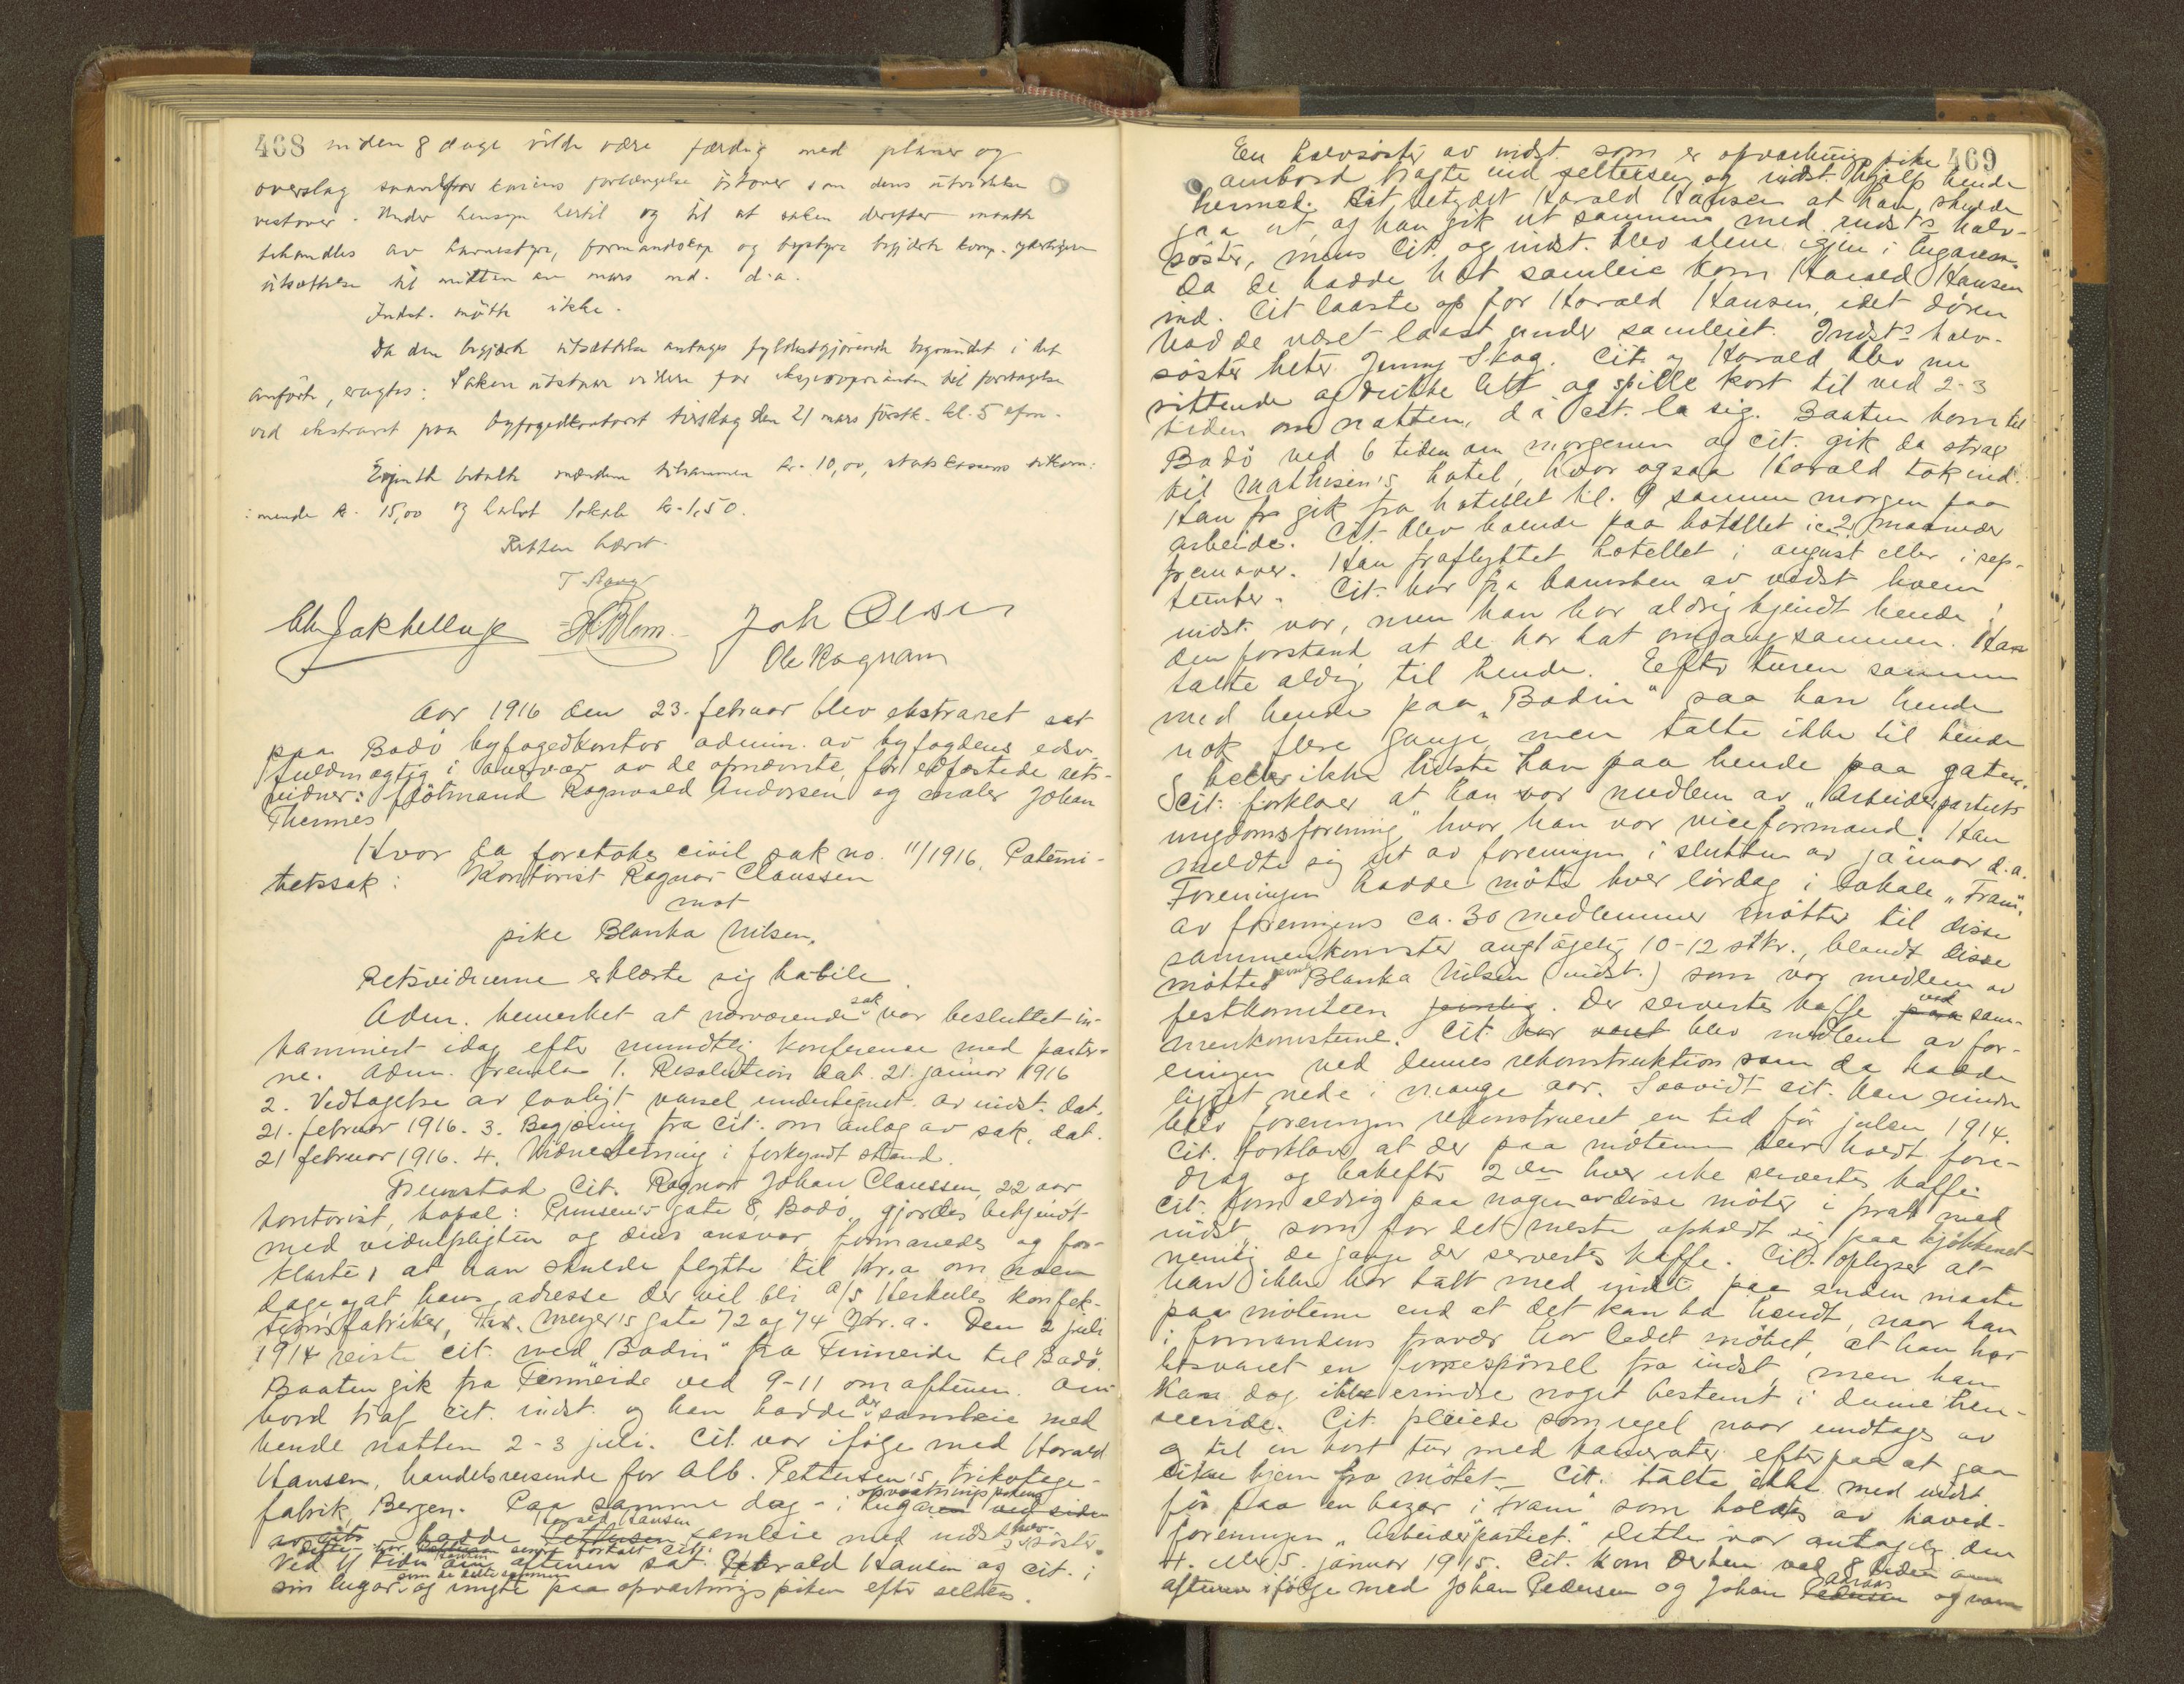 468 inden 8 dage vilde være færdig med planer og
overslag saavel for kaiens forlængelse østover som dens utvidelse
vestover. Under hensyn hertil og til at saken derefter maatte
behandles av havnestyre, formandskap og bystyre begjærte komp. yderligere
utsættelse til midten av mars md. d.a.
Indst. møtte ikke.
Da den begjærte utsættelse antages fyldestgjørende begrundet i det
anførte, eragtes: Saken utstaar videre for ekspropriaten til foretagelse
ved ekstraret paa byfogedkontoret tirsdag den 21 mars førstk. kl. 5 efm.
betalte mændene tilsammen kr. 10,00, statskassens tilkom-
mende kr. 15,00 og lokale kr. 1,50.
Retten hævet.
T. Haug
Chr Jakhelln jr HBlom. Joh Olsen
Ole Rognan
Aar 1916 den 23. februar blev ekstraret sat
paa Bodö byfogedkontor admin. av byfogdens edsv.
fuldmægtig i overvær av de opnævnte, før edfæstede rets-
vidner: Sjömand Ragnvald Andersen og maler Johan
Thennes
Hvor da foretokes civil sak no. 11/1916, Paterni-
tetssak: Kontorist Ragnar Claussen
mot
pike Blanka Nilsen.
Retsvidnerne erklærte sig habile.
Adm. bemerket at nærværende sak var besluttet in-
kaminert idag efter mundtlig konferanse med parter-
ne. Adm. fremla 1. Resolution dat. 21. januar 1916
2. Vedtagelse av lovligt varsel undertegnet av indst. dat.
21. februar 1916. 3. Begjæring fra Cit. om anlæg av sak, dat.
21 februar 1916. 4. Vidnestevning i forkyndt stand.
Fremstod Cit. Ragnar Johan Claussen, 22 aar
kontorist, bopæl: Prinsen's gate 8, Bodö, gjordes bekjendt
med vidnepligten og dens ansvar formanedes og for-
klarte, at han skulde flytte til Kr.a om noen
dage, og at hans adresse der vil bli A/S Herkules konfek-
tionsfabriker, Thv. Meyer's gate 72 og 74 Kr.a. Den 2 juli
1914 reiste cit. med "Bodin" fra Finneide til Bodö.
Baaten gik fra Finneide ved 9-11 om aftenen. Om-
bord traf cit. indst. og han hadde der samleie med
hende natten 2-3 juli. Cit. var ifölge med Harald
Hansen, handelsreisende for Alb. Pettersen's trikotage-
fabrik, Bergen. Paa samme dag - i opvartningspikens lugaren ved siden
av cits - hadde Harald Hansen Pettersen samleie med indst's halv-söster.
Dette har Pettersen Hansen senere fortalt cit.
Ved 11 tiden om aftenen sat Harald Hansen og cit. i
sin lugar som de delte sammen og ringte paa opvartningspiken efter selters.
469
En halvsöster av indst. som er opvartningspike
ombord bragte ind seltersen og indst. hjalp hende
hermed. Cit. betydet Harald Hansen at han skulde
gaa ut, og han gik ut sammen med indst's halv-
söster, mens Cit. og indst. blev alene igjen i lugaren.
Da de hadde hat samleie kom Harald Hansen
ind. Cit laaste op for Harald Hansen, idet dören
hadde været laast under samleiet. Indst's halv-
söster heter Jenny Skog. Cit. og Harald blev nu
sittende og drikke litt og spille kort til ved 2-3
tiden om natten, da cit. la sig. Baaten kom til
Bodö ved 6 tiden om morgenen og cit. gik da strax
til Mathisen's hotel, hvor ogsaa Harald tok ind.
Han gik fra hotellet kl. 9 samme morgen paa
arbeide. Cit. blev boende paa hotellet i ca 2 maaneder
fremover. Han fraflyttet hotellet i august eller i sep-
tember. Cit. har fra barnsben av vidst hvem
indst. var, men han har aldrig kjendt hende i
den forstand at de har hat omgang sammen. Han
talte aldrig til hende. Efter turen sammen
med hende paa "Bodin" saa han hende
nok flere gange, men talte ikke til hende
heller ikke hilste han paa hende paa gaten.
Cit. forklarer at han var medlem av "Arbeiderpartiets
ungdomsforening" hvor han var viceformand. Han
meldte sig ut av foreningen i slutten av januar d.a.
Foreningen hadde möte hver lördag i lokale "Fram".
Av foreningens ca. 30 medlemmer mötte til disse
sammenkomster antagelig 10-12 stkr., blandt disse
møtte Blanka Nilsen (indst.) som var medlem av
festkomiteen. Der servertes kaffe paa ved sam-
menkomsterne. Cit. har været blev medlem av for-
eningen ved dennes rekonstruktion som da hadde
ligget nede i mange aar. Saavidt cit. kan erindre
blev foreningen rekonstrueret en tid för julen 1914.
Cit. forklarer at der paa mötene blev holdt fore-
drag og bakefter 2den hver uke servertes kaffe.
Cit. kom aldrig paa nogen av disse möter i prat med
indst. som for det meste opholdt sig paa kjökkenet
nemlig de gange der servertes kaffe. Cit. oplyser at
han ikke har talt med indst. paa anden maate
paa mötene end at det kan ha hændt, naar han
i formandens fravær har ledet mötet, at han har
besvaret en forespörsel fra indst, men han
kan dog ikke erindre noget bestemt i denne hen-
seende. Cit. pleiede som regel naar undtages av
og til en kort tur med kamerater efterpaa at gaa
like hjem fra mötet. Cit. talte ikke med indst
för paa en bazar i "Fram" som holdtes av hoved-
foreningen "Arbeiderpartiet". Dette var antagelig den
4. eller 5. januar 1915. Cit. kom derhen ved 8 tiden om
aftenen ifölge med Johan Pedersen og Johan Pedersen og